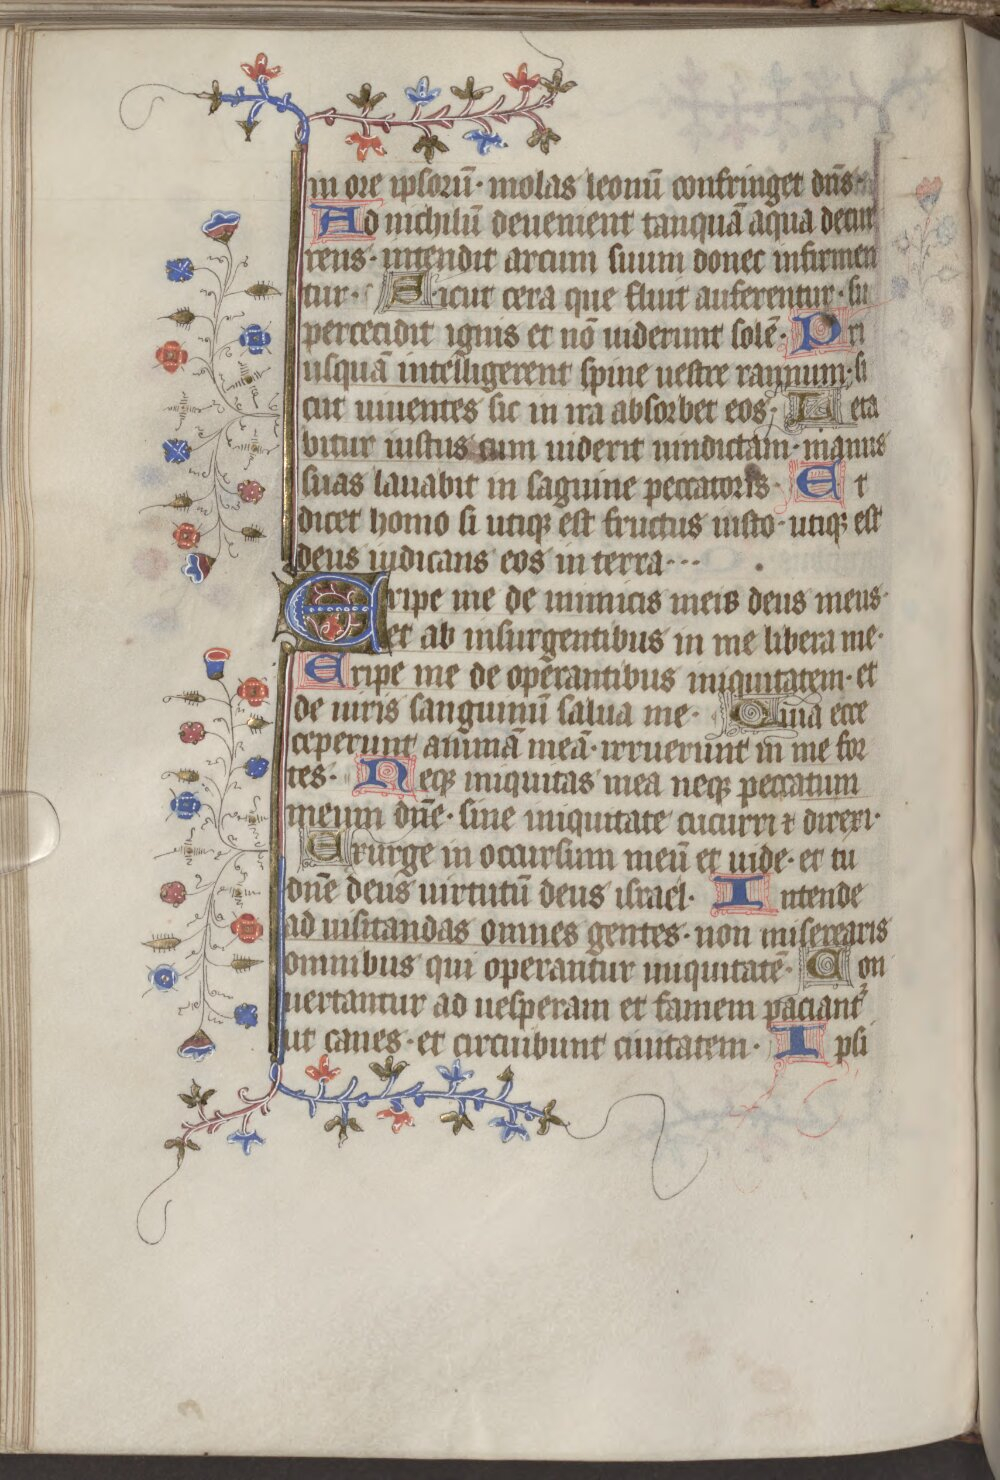 in ore ipsorū· molas leonū confringet dn̄s·
Ad nichilū deuenient tanquā aqua decur
rens· intendit arcum suum donec infirmen
tur· Sicut cera que fluit auferentur· su
percecidit ignis et nō uiderunt solē· Pri
usquā intelligerent spine uestre rannum· si
cut uiuentes sic in ira absorbet eos· Leta
bitur iustus cum uiderit uindictam· manus
suas lauabit in saguine peccatoris· Et
dicet homo si utiqꝫ est fructus iusto· utiqꝫ est
deus iudicans eos in terra···
Eripe me de inimicis meis deus meus·
et ab insurgentibus in me libera me·
Eripe me de operantibus iniquitatem· et
de uiris sanguinū salua me· Quia ecce
ceperunt animā meā· irruerunt in me for
tes· Neqꝫ iniquitas mea neqꝫ peccatum
meum dn̄e· sine iniquitate cucurri ⁊ direxi·
Exurge in occursum meū et uide· et tu
dn̄e deus uirtutū deus israel· Intende
ad uisitandas omnes gentes· non miserearis
omnibus qui operantur iniquitatē· Con
uertantur ad uesperam et famem paciant᷑
ut canes· et circuibunt ciuitatem· Ipsi